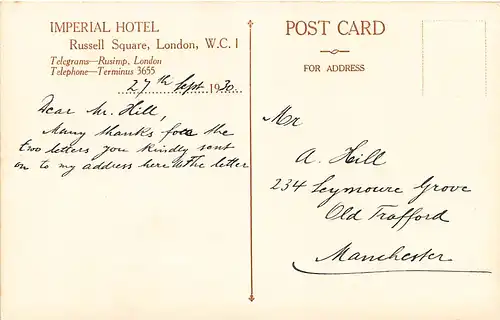 IMPERIAL HOTEL
Russell Square, London, W.C.1
Telegrams—Rusimp, London
Telephone—Terminus 3655
27th Sept. 1930.
Dear Mr. Hill,
Many thanks for the
two letters you kindly sent
on to my address here. the letter
POST CARD
FOR ADDRESS
Mr
A. Hill
234 Seymoure Grove
Old Trafford
Manchester